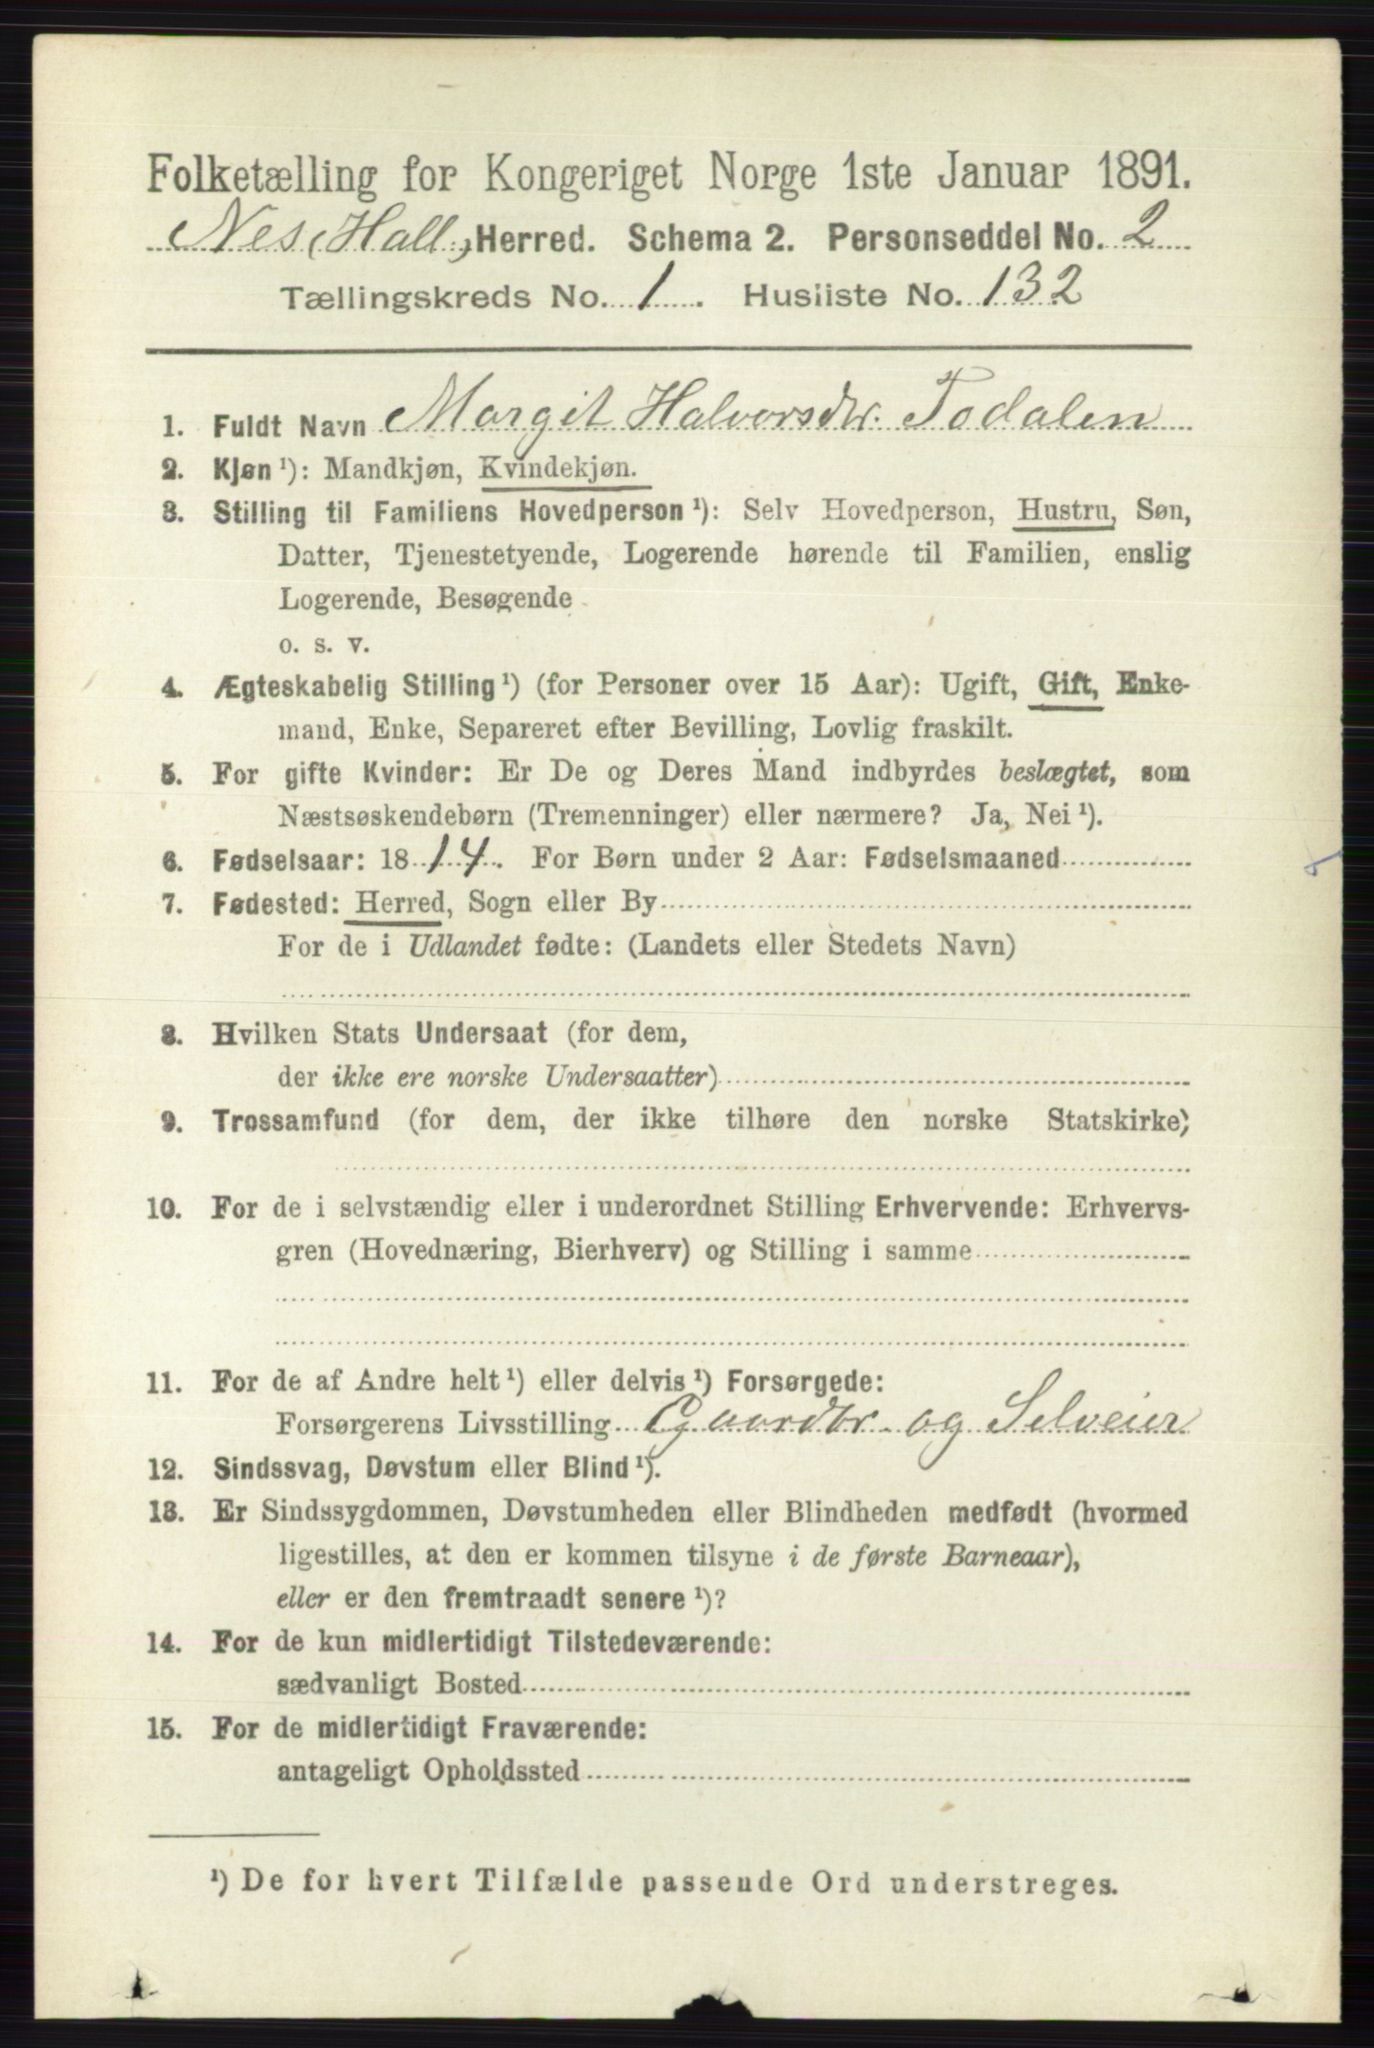 Folketælling for Kongeriget Norge 1ste Januar 1891.
Nes (Hall:) Herred. Schema 2. Personseddel No. 2
Tællingskreds No. 1. Husliste No. 132
1. Fuldt Navn Margit Halvorsdtr. Todalen
2. Kjøn ¹): Mandkjøn, Kvindekjøn.
3. Stilling til Familiens Hovedperson ¹): Selv Hovedperson, Hustru, Søn,
Datter, Tjenestetyende, Logerende hørende til Familien, enslig
Logerende, Besøgende
o. s. v.
4. Ægteskabelig Stilling ¹) (for Personer over 15 Aar): Ugift, Gift, Enke-
mand, Enke, Separeret efter Bevilling, Lovlig fraskilt.
5. For gifte Kvinder: Er De og Deres Mand indbyrdes beslægtet, som
Næstsøskendebørn (Tremenninger) eller nærmere? Ja, Nei ¹).
6. Fødselsaar: 1814. For Børn under 2 Aar: Fødselsmaaned
7. Fødested: Herred, Sogn eller By
For de i Udlandet fødte: (Landets eller Stedets Navn)
8. Hvilken Stats Undersaat (for dem,
der ikke ere norske Undersaatter)
9. Trossamfund (for dem, der ikke tilhøre den norske Statskirke)
10. For de i selvstændig eller i underordnet Stilling Erhvervende: Erhvervs-
gren (Hovednæring, Bierhverv) og Stilling i samme
11. For de af Andre helt ¹) eller delvis ¹) Forsørgede:
Forsørgerens Livsstilling Gaardbr. og Selveier
12. Sindssvag, Døvstum eller Blind ¹).
13. Er Sindssygdommen, Døvstumheden eller Blindheden medfødt (hvormed
ligestilles, at den er kommen tilsyne i de første Barneaar),
eller er den fremtraadt senere ¹)?
14. For de kun midlertidigt Tilstedeværende:
sædvanligt Bosted
15. For de midlertidigt Fraværende:
antageligt Opholdssted
¹) De for hvert Tilfælde passende Ord understreges.